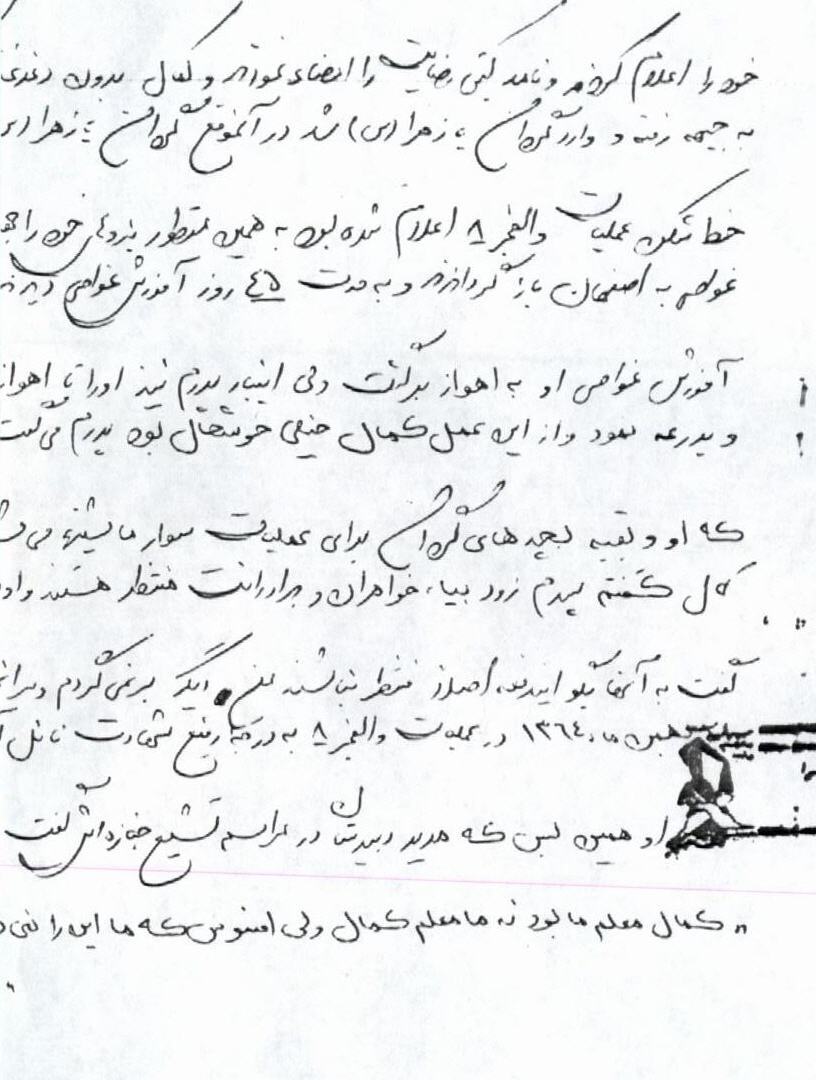 خود را اعلام کردند و نامه کتبی رضایت را امضاء نمودند و کمال بدون دغدغه
به جبهه رفته و وارد گردان یا زهرا (س) شد در آنموقع گردان یا زهرا (س)
خط شکن عملیات والفجر ۸ اعلام شده بود به همین منظور نیروهای خود را
غواصی به اصفهان باز گرداندند و به مدت ۴۵ روز آموزش غواصی
آموزش غواصی او به اهواز برگشت ولی اینبار پدرم نیز او را تا اهواز
و بدرقه نمود و از این عمل کمال خیلی خوشحال بود پدرم می‌گفت
که او و بقیه بچه های گردان برای عملیات سوار ماشینها می
کمال گفتم پسرم زود بیا، خواهران و برادرانت منتظر هستند و او
گفت به آنها بگوئید اصلاً منتظر نباشند من دیگر برنمی گردم
بهمن ماه ۱۳٦٤ در عملیات والفجر ۸ به درجه رفیع شهادت نائل
او همین بس که مدیر دبیرستان در مراسم تشییع جنازه اش گفت
" کمال معلم ما بود نه ما معلم کمال ولی افسوس که ما این را نمی